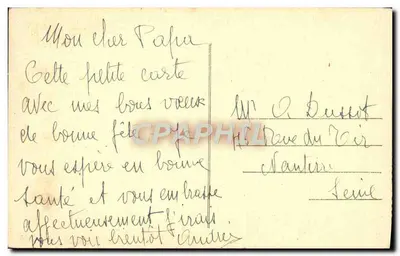 Mon cher Papa
Cette petite carte
avec mes bons vœux
de bonne fête. Je
vous espère en bonne
santé et vous embrasse
affectueusement j'irais
vous voir bientôt Andrée
Mr O Dussot
Rue du Tir
Nanterre
Seine
CPHPHIL